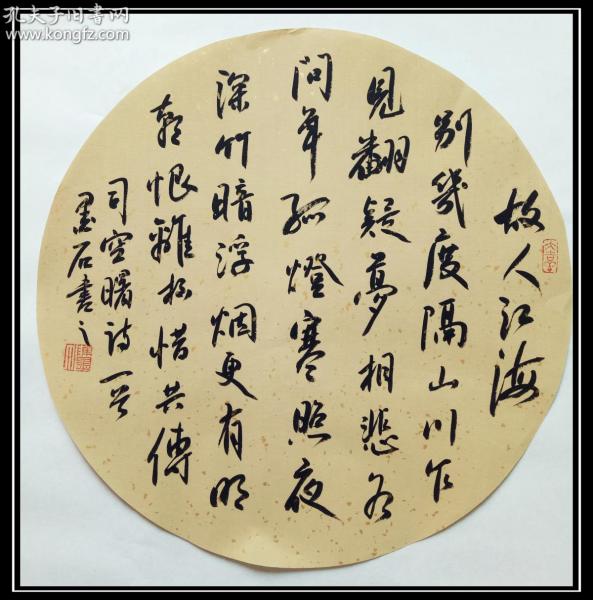 孔夫子旧书网
www.kongfz.com
故人江海
別幾度隔山川乍
見翻疑夢相悲各
問年孤燈寒照夜
深竹暗浮烟更有明
朝恨離杯惜共傳
司空曙詩一首
墨石書之